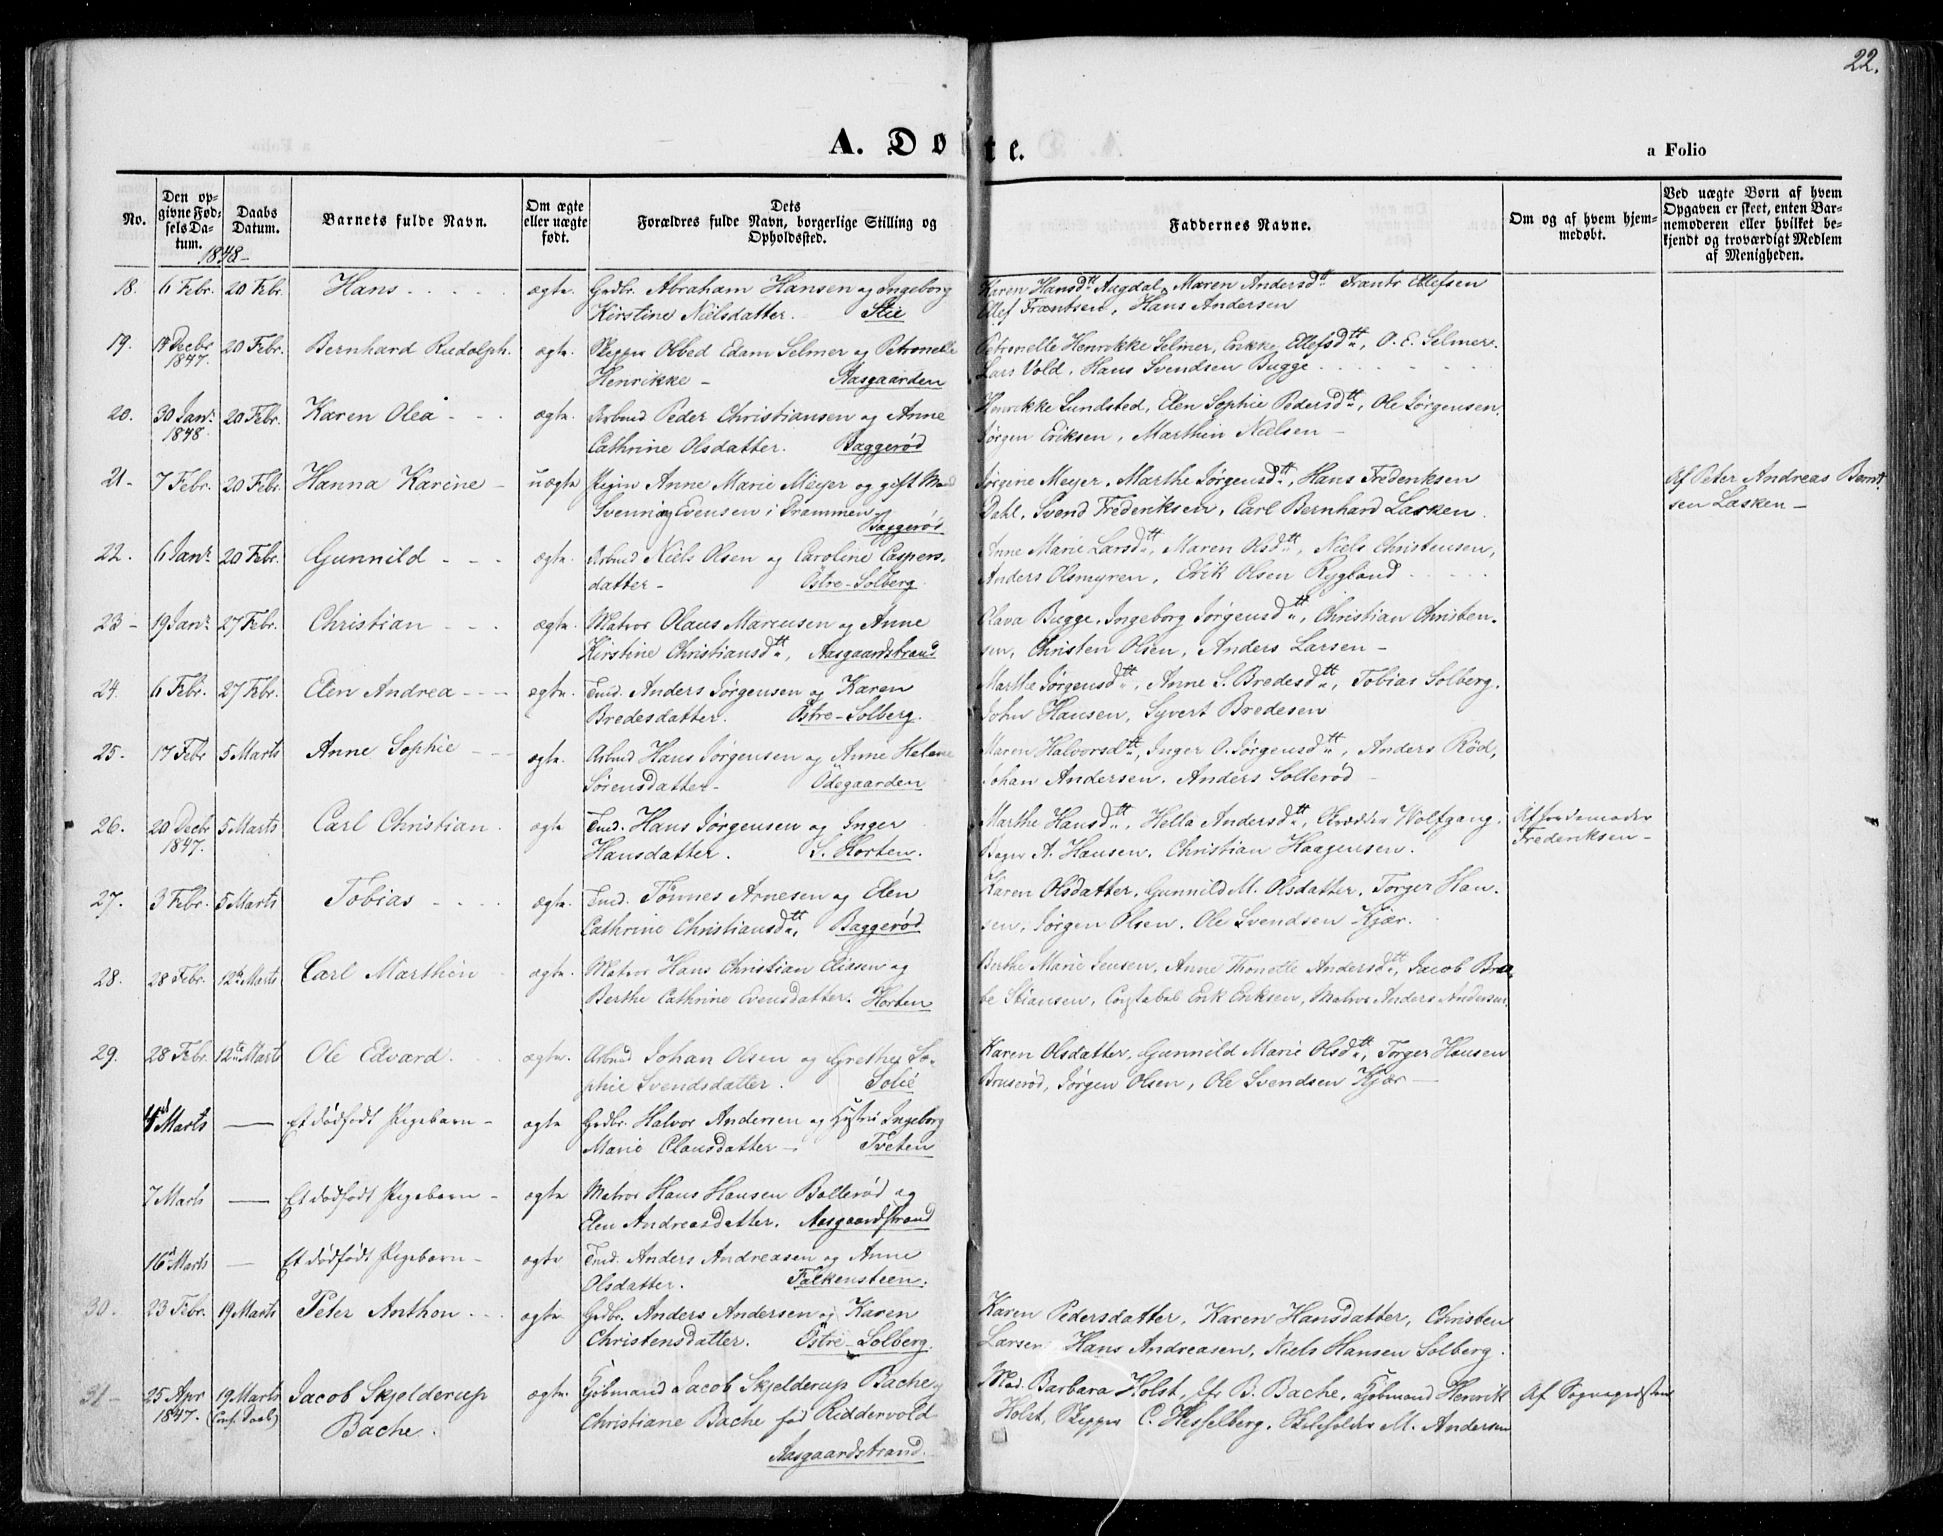 22.
A. Døbte.
a Folio
No.
Den opgivne Fødselsdatum.
Daabs Datum.
Barnets fulde Navn.
Om ægte eller uægte født.
Dets Forældres fulde Navn, borgerlige Stilling og Opholdssted.
Faddernes Navne.
Om og af hvem hjemmedøbt.
Ved uægte Børn af hvem Opgaven er skeet, enten Barnemoderen eller hvilket bekjendt og troværdigt Medlem af Menigheden.
1848-
18. 6 Febr. 20 Febr. Hans ægte. Grdbr. Abraham Hansen og Ingeborg Karen Hansdtt Augdal, Maren Andersdtt Frants Ellefsen
Kirstine Nielsdatter. Stie Ellef Frantsen, Hans Andersen
19. 14 Decbr 20 Febr. Bernhard Rudolph. ægte. Skipper Obbed Edam Selmer og Petronelle Petronelle Henrikke Selmer, Enkke Ellefsdtt, O. E. Selmer.
1847. Henrikke - Aasgaarden Lars Vold, Hans Svendsen Bugge
20. 30 Janr. 20 Febr. Karen Olea ægte. Arbmd Peder Christiansen og Anne Henrikke Lundsted, Elen Sophie Pedersdtt, Ole Jørgensen.
1848. Cathrine Olsdatter. Baggerød Jørgen Eriksen, Marthin Nielsen -
21- 7 Febr. 20 Febr. Hanna Karine - uægte Pigen Anne Marie Meyer og gift Mand Jørgine Meyer, Marthe Jørgensdtt, Hans Frederiksen Af Peter Andreas Bernt
Svennig Evensen i Drammen Dahl, Svend Frederiksen, Carl Bernhard Lasken. sen Lasken -
Baggerød
22. 6 Janr. 20 Febr. Gunnild - - - ægte. Arbmd Niels Olsen og Caroline Caspers- Anne Marie Larsdtt, Maren Olsdtt, Niels Christensen,
datter - Østre-Solberg. Anders Olsmyren, Erik Olsen Rygland
23- 19 Janr. 27 Febr. Christian ægte. Matros Olaus Marcusen og Anne Olava Bugge, Ingeborg Jørgensdtt, Christian Christen-
Kirstine Christiansdtt, Aasgaardstrand sen, Christen Olsen, Anders Larsen -
24. 6 Febr. 27 Febr. Elen Andrea - - - ægte. Tmd. Anders Jørgensen og Karen Marthe Jørgensdtt, Anne S. Bredesdtt, Tobias Solberg,
Bredesdatter. Østre-Solberg. John Hansen, Syvert Bredesen
25. 17 Febr 5 Marts Anne Sophie - - - ægte. Arbmd Hans Jørgensen og Anne Helene Maren Halvorsdtt, Inger O. Jørgensdtt, Anders Rød,
Sørensdatter - Ødegaarden Johan Andersen, Anders Sollerød -
26. 20 Decbr 5 Marts Carl Christian. ægte Tmd. Hans Jørgensen og Inger Marthe Hansdtt, Hella Andersdtt, Wolfgang, Af Jordemoder
1847. Hansdatter. S. Horten. Bager A. Hansen, Christian Haagensen. Frederiksen -
27. 3 Febr. 5 Marts Tobias ægte. Tmd. Tønnes Arnesen og Elen Karen Olsdatter, Gunnild M. Olsdatter, Torger Han-
Cathrine Christiansdtt, Baggerød sen, Jørgen Olsen, Ole Svendsen Kjær.
28. 28 Febr. 12te Marts Carl Marthin ægte. Matros Hans Christian Eliasen og Berthe Marie Jensen, Anne Thonette Andersdtt, Jacob
Berthe Cathrine Evensdatter. Horten Stiansen, Constabel Erik Eriksen, Matros Anders Andersen
29. 28 Febr. 12te Marts Ole Edvard. ægte. Arbmd Johan Olsen og Grethe So- Karen Olsdatter, Gunnild Marie Olsdtt, Torger Hansen
phie Svendsdatter. Solie Bruserød, Jørgen Olsen, Ole Svendsen Kjær -
4 Marts — Et dødfødt Pigebarn - ægte Grdbr. Halvor Andersen og Hustru Ingeborg
Marie Clausdatter - Tveten
7 Marts — Et dødfødt Pigebarn - ægte Matros Hans Hansen Bollerød og
Elen Andreasdatter. Aasgaardstrand
16 Marts — Et dødfødt Pigebarn - ægte Tmd. Anders Andreasen og Anne
Olsdatter. Falkensteen.
30. 23 Febr. 19 Marts Peter Anthon. ægte. Grdbr. Anders Andersen og Karen Karen Pedersdatter, Karen Hansdatter, Christen
Christensdatter. Østre-Solberg. Larsen Hans Andreasen, Niels Hansen Solberg.
31- 25 Apr 19 Marts Jacob Skjelderup ægte. Kjøbmand Jacob Skjelderup Bache, Mad. Barbara Holst, Bache, Kjøbmand Henrik Af Sognepræsten
1847. Bache. Christiane Bache fød Riddervold Holst, Skipper C. Hesselberg, Skoleholder M. Andersen
Aasgaardstrand.